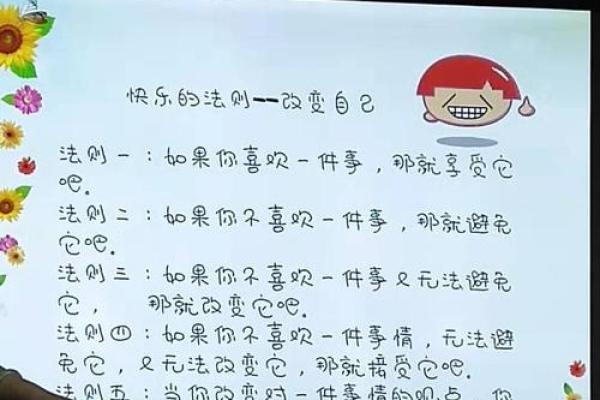 快乐的法则--改变自己
法则一：如果你喜欢一件事，那就享受它
吧。
法则二：如果你不喜欢一件事，那就避免
它吧。
法则三：如果你不喜欢一件事又无法避免
它， 那就改变它吧。
法则四：如果你不喜欢一件事情，无法避
免它，又无法改变它，那就接受它吧。
法则五：当你改变对一件事情的观点，你